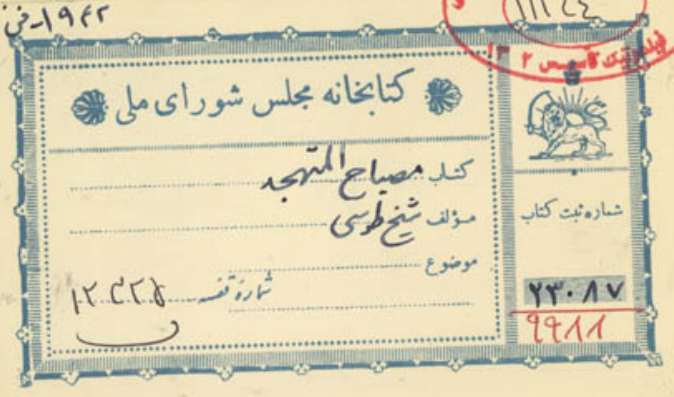 ۱۹۴۲-فن
کتابخانه مجلس شورای ملی
کتاب مصباح المتهجد
مؤلف شیخ طوسی
موضوع
شماره قفسه ۱۲۳۲۵
شماره ثبت کتاب
۲۳۰۸۷
۹۹۸۸